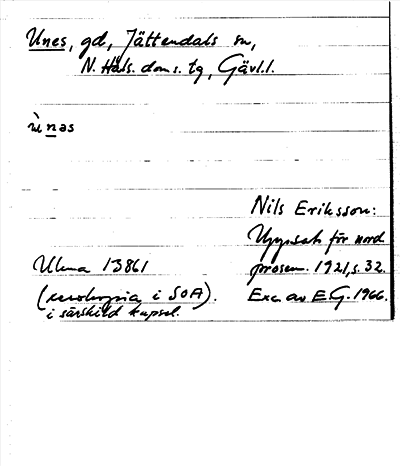 Unes, gd, Jättendals sn,
N. Häls. doms. tg, Gävl.l.
ùnas
Nils Eriksson:
Uppsats för nord
Ulma 13861 prosem. 1921, s. 32.
(xerokopia i SOA). Exc. av E.G. 1966.
i särskild kapsel.